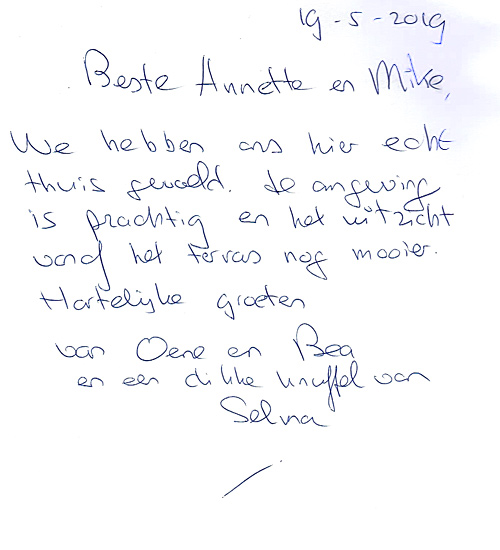 19-5-2019
Beste Annette en Mike,
We hebben ons hier echt
thuis gevoeld. De omgeving
is prachtig en het uitzicht
vanaf het terras nog mooier.
Hartelijke groeten
van Oene en Bea
en een dikke knuffel van
Selma